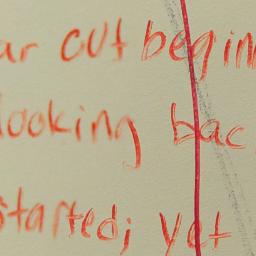 ar out begin
looking bac
started; yet